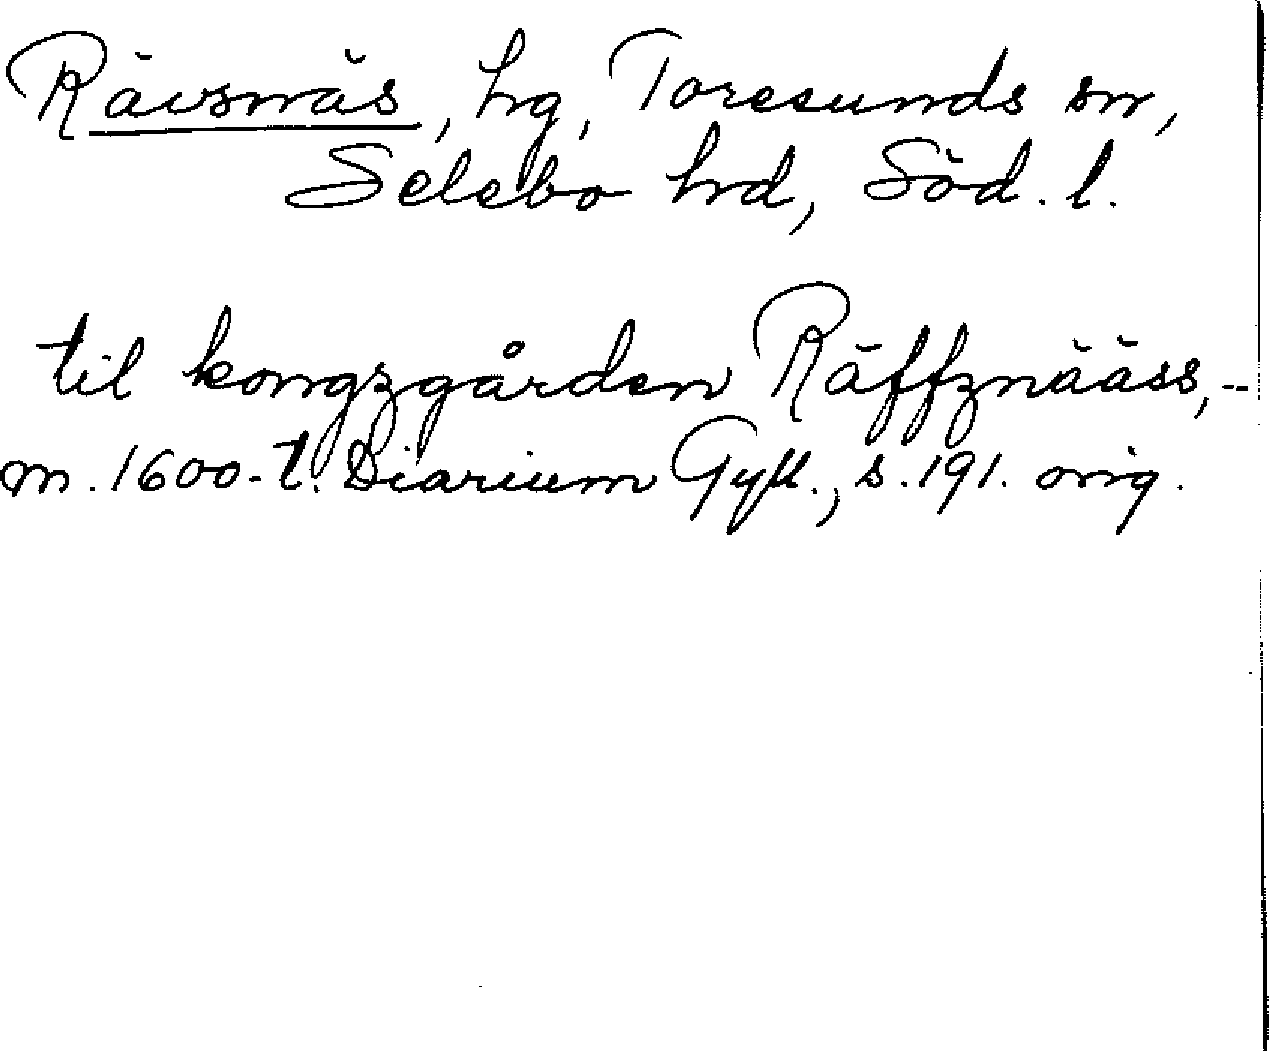 Rävsnäs, hg, Toresunds sn,
Selebo hd, Söd. l.
til kongzgården Räffznääss,--
m. 1600-t. Diarium Gyll., s. 191. orig.